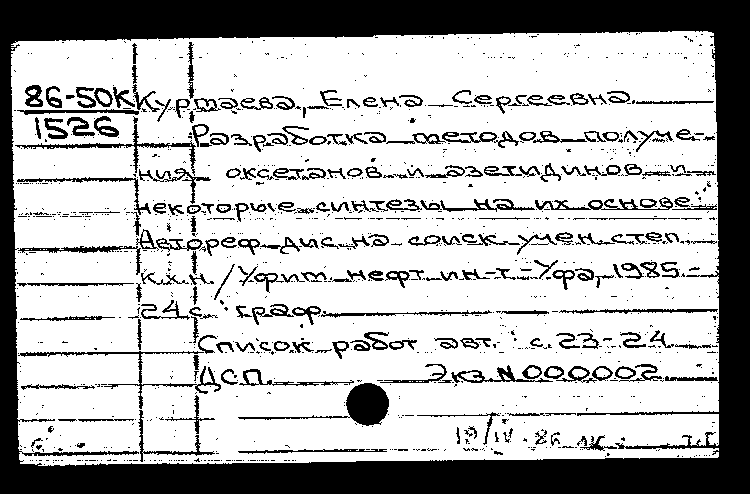 86-50К Куртаева, Елена Сергеевна
1526 Разработка методов получе-
ния оксетанов и азетидинов и
некоторые синтезы на их основе:
Автореф дис на соиск учен степ
к.х.н. / Уфит нефт ин-т - Уфа, 1985.-
24 с : граф
Список работ авт. : с. 23-24
ДСП. Экз N 000002
19/IV-86